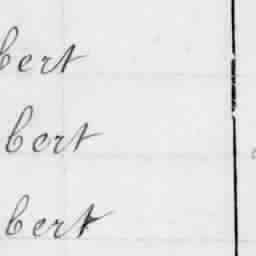 bert
bert
bert